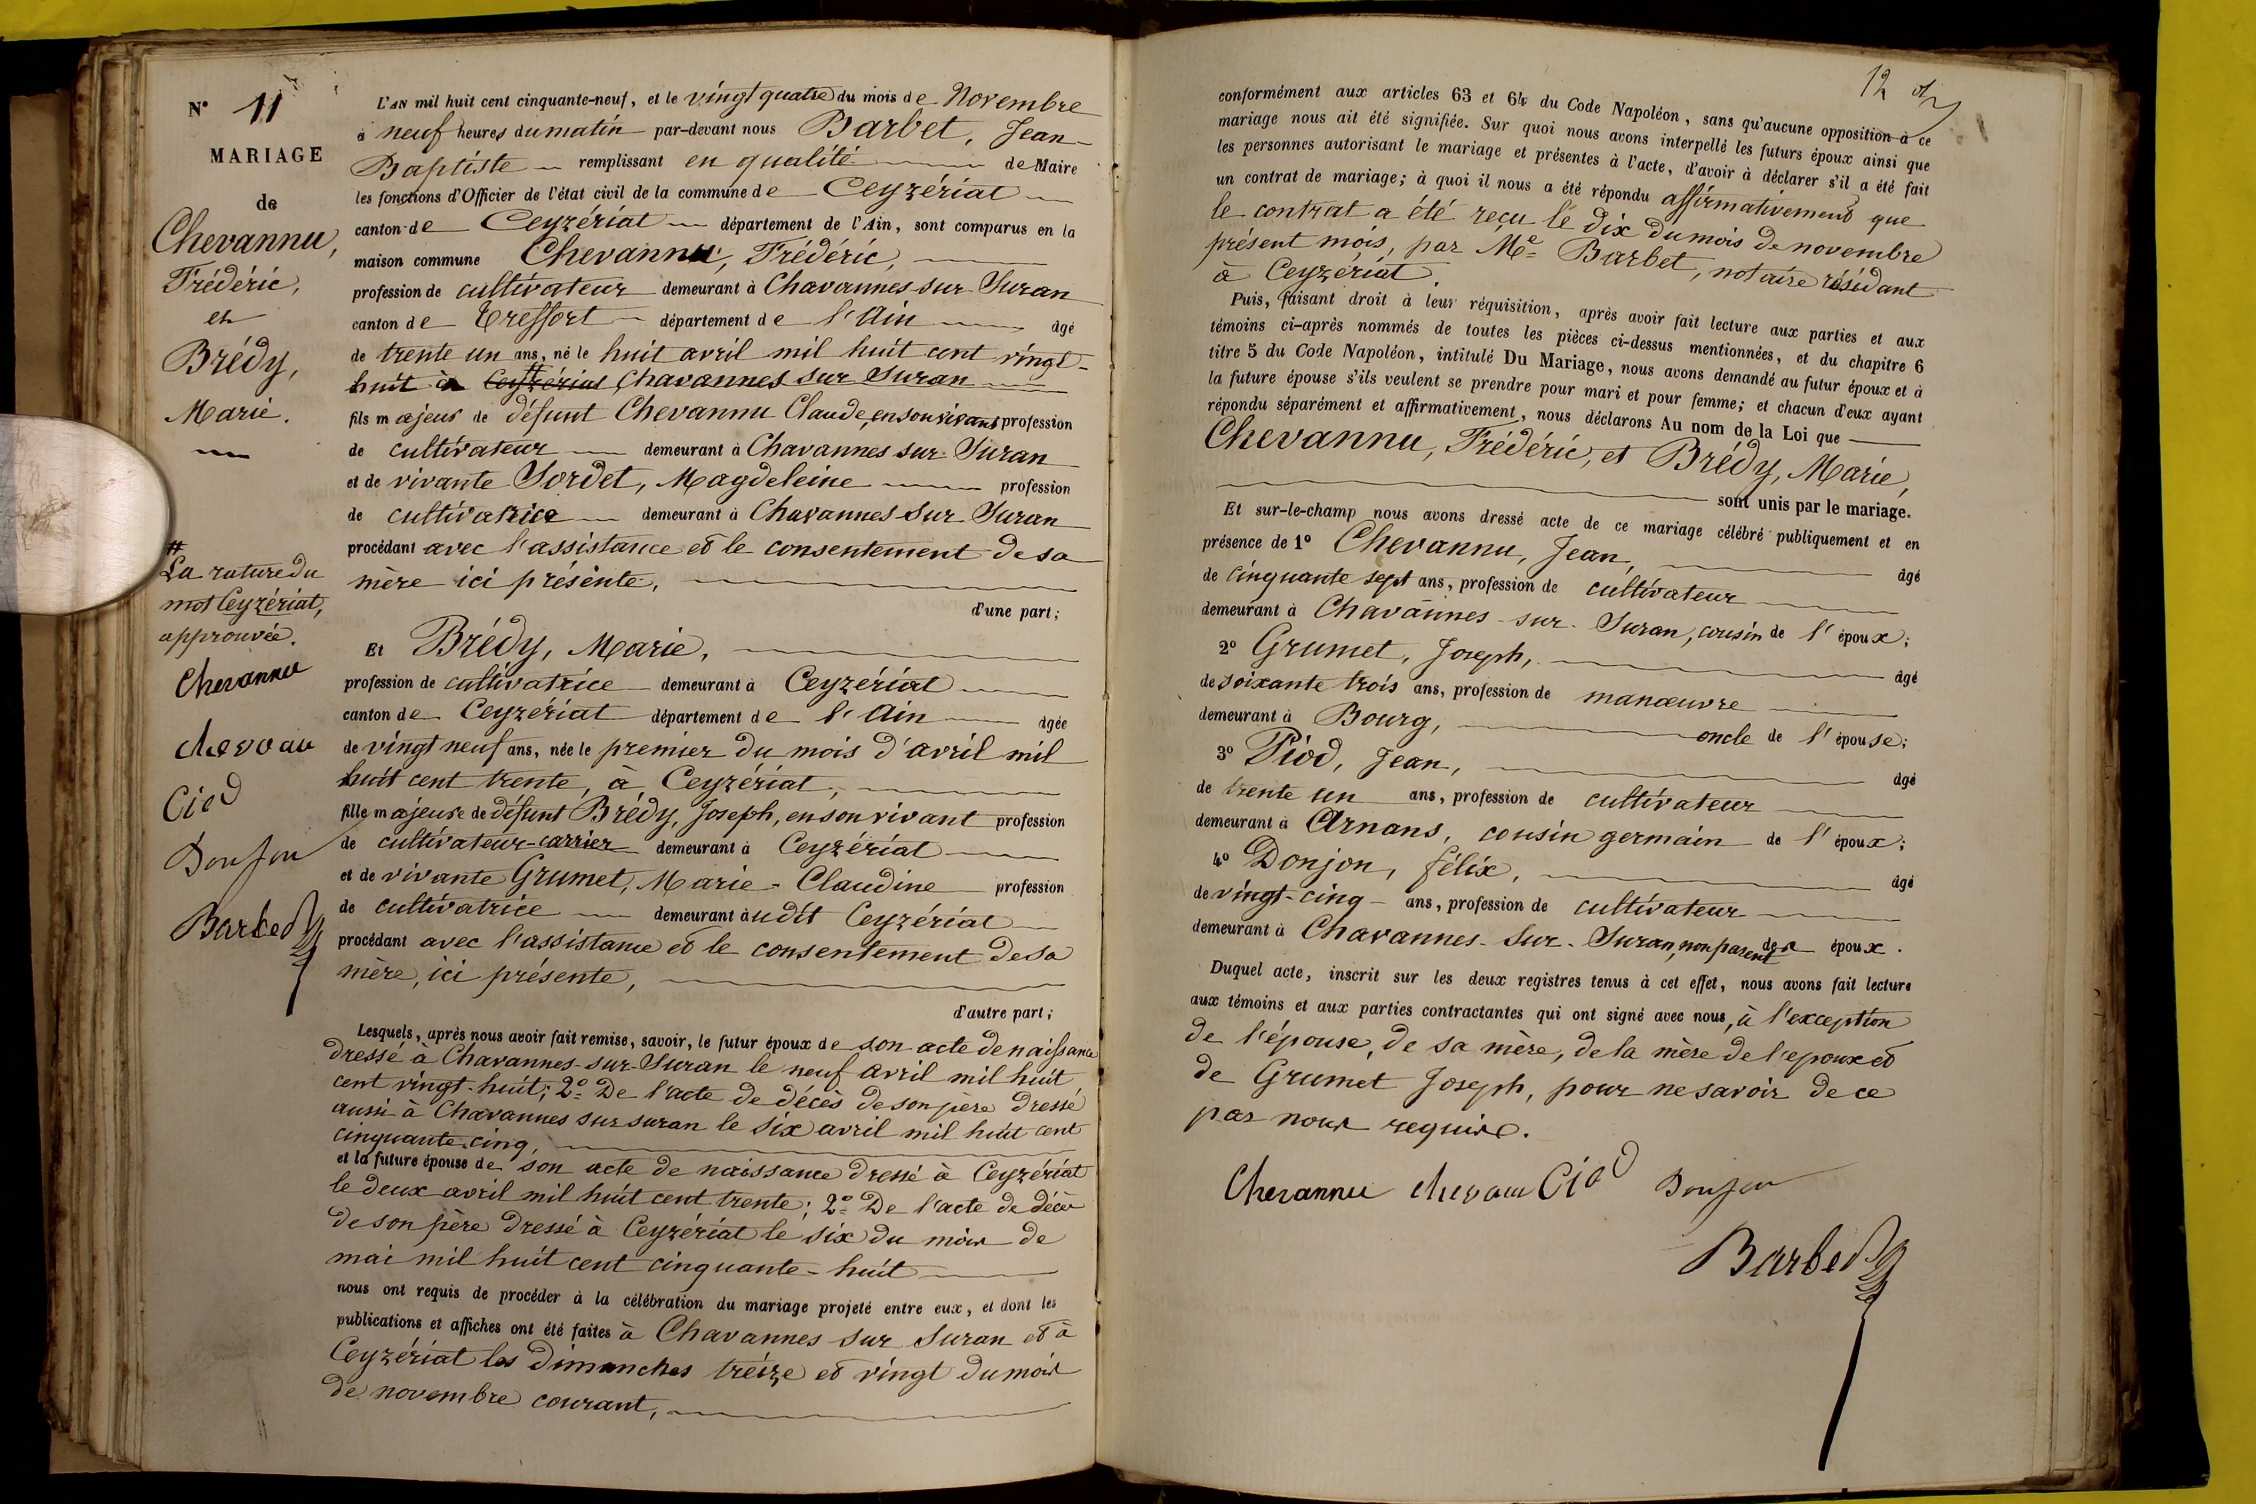 N° 11
MARIAGE
de
Chevannu,
Frédéric,
et
Brédy,
Marie.
#
La rature du
mot Ceyzériat,
approuvée.
Chevannu
Donjon
Barbet
L'AN mil huit cent cinquante-neuf, et le vingt quatre du mois de Novembre
à neuf heures du matin par-devant nous Barbet, Jean-
Baptiste remplissant en qualité de Maire
les fonctions d'Officier de l'état civil de la commune de Ceyzériat
canton de Ceyzériat département de l'Ain, sont comparus en la
maison commune Chevannu, Frédéric,
profession de cultivateur demeurant à Chavannes-sur-Suran
canton de Treffort département de l'Ain âgé
de trente un ans, né le huit avril mil huit cent vingt-
huit à Ceyzériat # Chavannes sur Suran
fils majeur de défunt Chevannu Claude, en son vivant profession
de cultivateur demeurant à Chavannes-sur-Suran
et de vivante Sordet, Magdeleine profession
de cultivatrice demeurant à Chavannes-sur-Suran
procédant avec l'assistance et le consentement de sa
mère ici présente,
d'une part;
Et Brédy, Marie,
profession de cultivatrice demeurant à Ceyzériat
canton de Ceyzériat département de l'Ain âgée
de vingt neuf ans, née le premier du mois d'avril mil
huit cent trente, à Ceyzériat,
fille majeure de défunt Brédy, Joseph, en son vivant profession
de cultivateur-carrier demeurant à Ceyzériat
et de vivante Grumet, Marie-Claudine profession
de cultivatrice demeurant audit Ceyzériat
procédant avec l'assistance et le consentement de sa
mère, ici présente,
d'autre part;
Lesquels, après nous avoir fait remise, savoir, le futur époux de son acte de naissance
dressé à Chavannes-sur-Suran le neuf avril mil huit
cent vingt-huit; 2° De l'acte de décès de son père dressé
aussi à Chavannes sur suran le six avril mil huit cent
cinquante-cinq,
et la future épouse de son acte de naissance dressé à Ceyzériat
le deux avril mil huit cent trente; 2° De l'acte de décès
de son père dressé à Ceyzériat le six du mois de
mai mil huit cent cinquante-huit
nous ont requis de procéder à la célébration du mariage projeté entre eux, et dont les
publications et affiches ont été faites à Chavannes sur Suran et à
Ceyzériat les Dimanches treize et vingt du mois
de novembre courant,
12
conformément aux articles 63 et 64 du Code Napoléon, sans qu'aucune opposition à ce
mariage nous ait été signifiée. Sur quoi nous avons interpellé les futurs époux ainsi que
les personnes autorisant le mariage et présentes à l'acte, d'avoir à déclarer s'il a été fait
un contrat de mariage; à quoi il nous a été répondu affirmativement que
le contrat a été reçu le dix du mois de novembre
présent mois, par Me Barbet, notaire résidant
à Ceyzériat.
Puis, faisant droit à leur réquisition, après avoir fait lecture aux parties et aux
témoins ci-après nommés de toutes les pièces ci-dessus mentionnées, et du chapitre 6
titre 5 du Code Napoléon, intitulé Du Mariage, nous avons demandé au futur époux et à
la future épouse s'ils veulent se prendre pour mari et pour femme; et chacun d'eux ayant
répondu séparément et affirmativement, nous déclarons Au nom de la Loi que
Chevannu, Frédéric, et Brédy, Marie,
sont unis par le mariage.
Et sur-le-champ nous avons dressé acte de ce mariage célébré publiquement et en
présence de 1° Chevannu, Jean, âgé
de cinquante sept ans, profession de cultivateur
demeurant à Chavannes-sur-Suran, cousin de l'époux;
2° Grumet, Joseph, âgé
de soixante trois ans, profession de manœuvre
demeurant à Bourg, oncle de l'épouse;
3° Piod, Jean, âgé
de trente un ans, profession de cultivateur
demeurant à Arnans, cousin germain de l'époux;
4° Donjon, félix, âgé
de vingt-cinq ans, profession de cultivateur
demeurant à Chavannes-Sur-Suran, non parent des époux.
Duquel acte, inscrit sur les deux registres tenus à cet effet, nous avons fait lecture
aux témoins et aux parties contractantes qui ont signé avec nous, à l'exception
de l'épouse, de sa mère, de la mère de l'époux et
de Grumet Joseph, pour ne savoir de ce
par nous requis.
Chevannu Donjon
Barbet